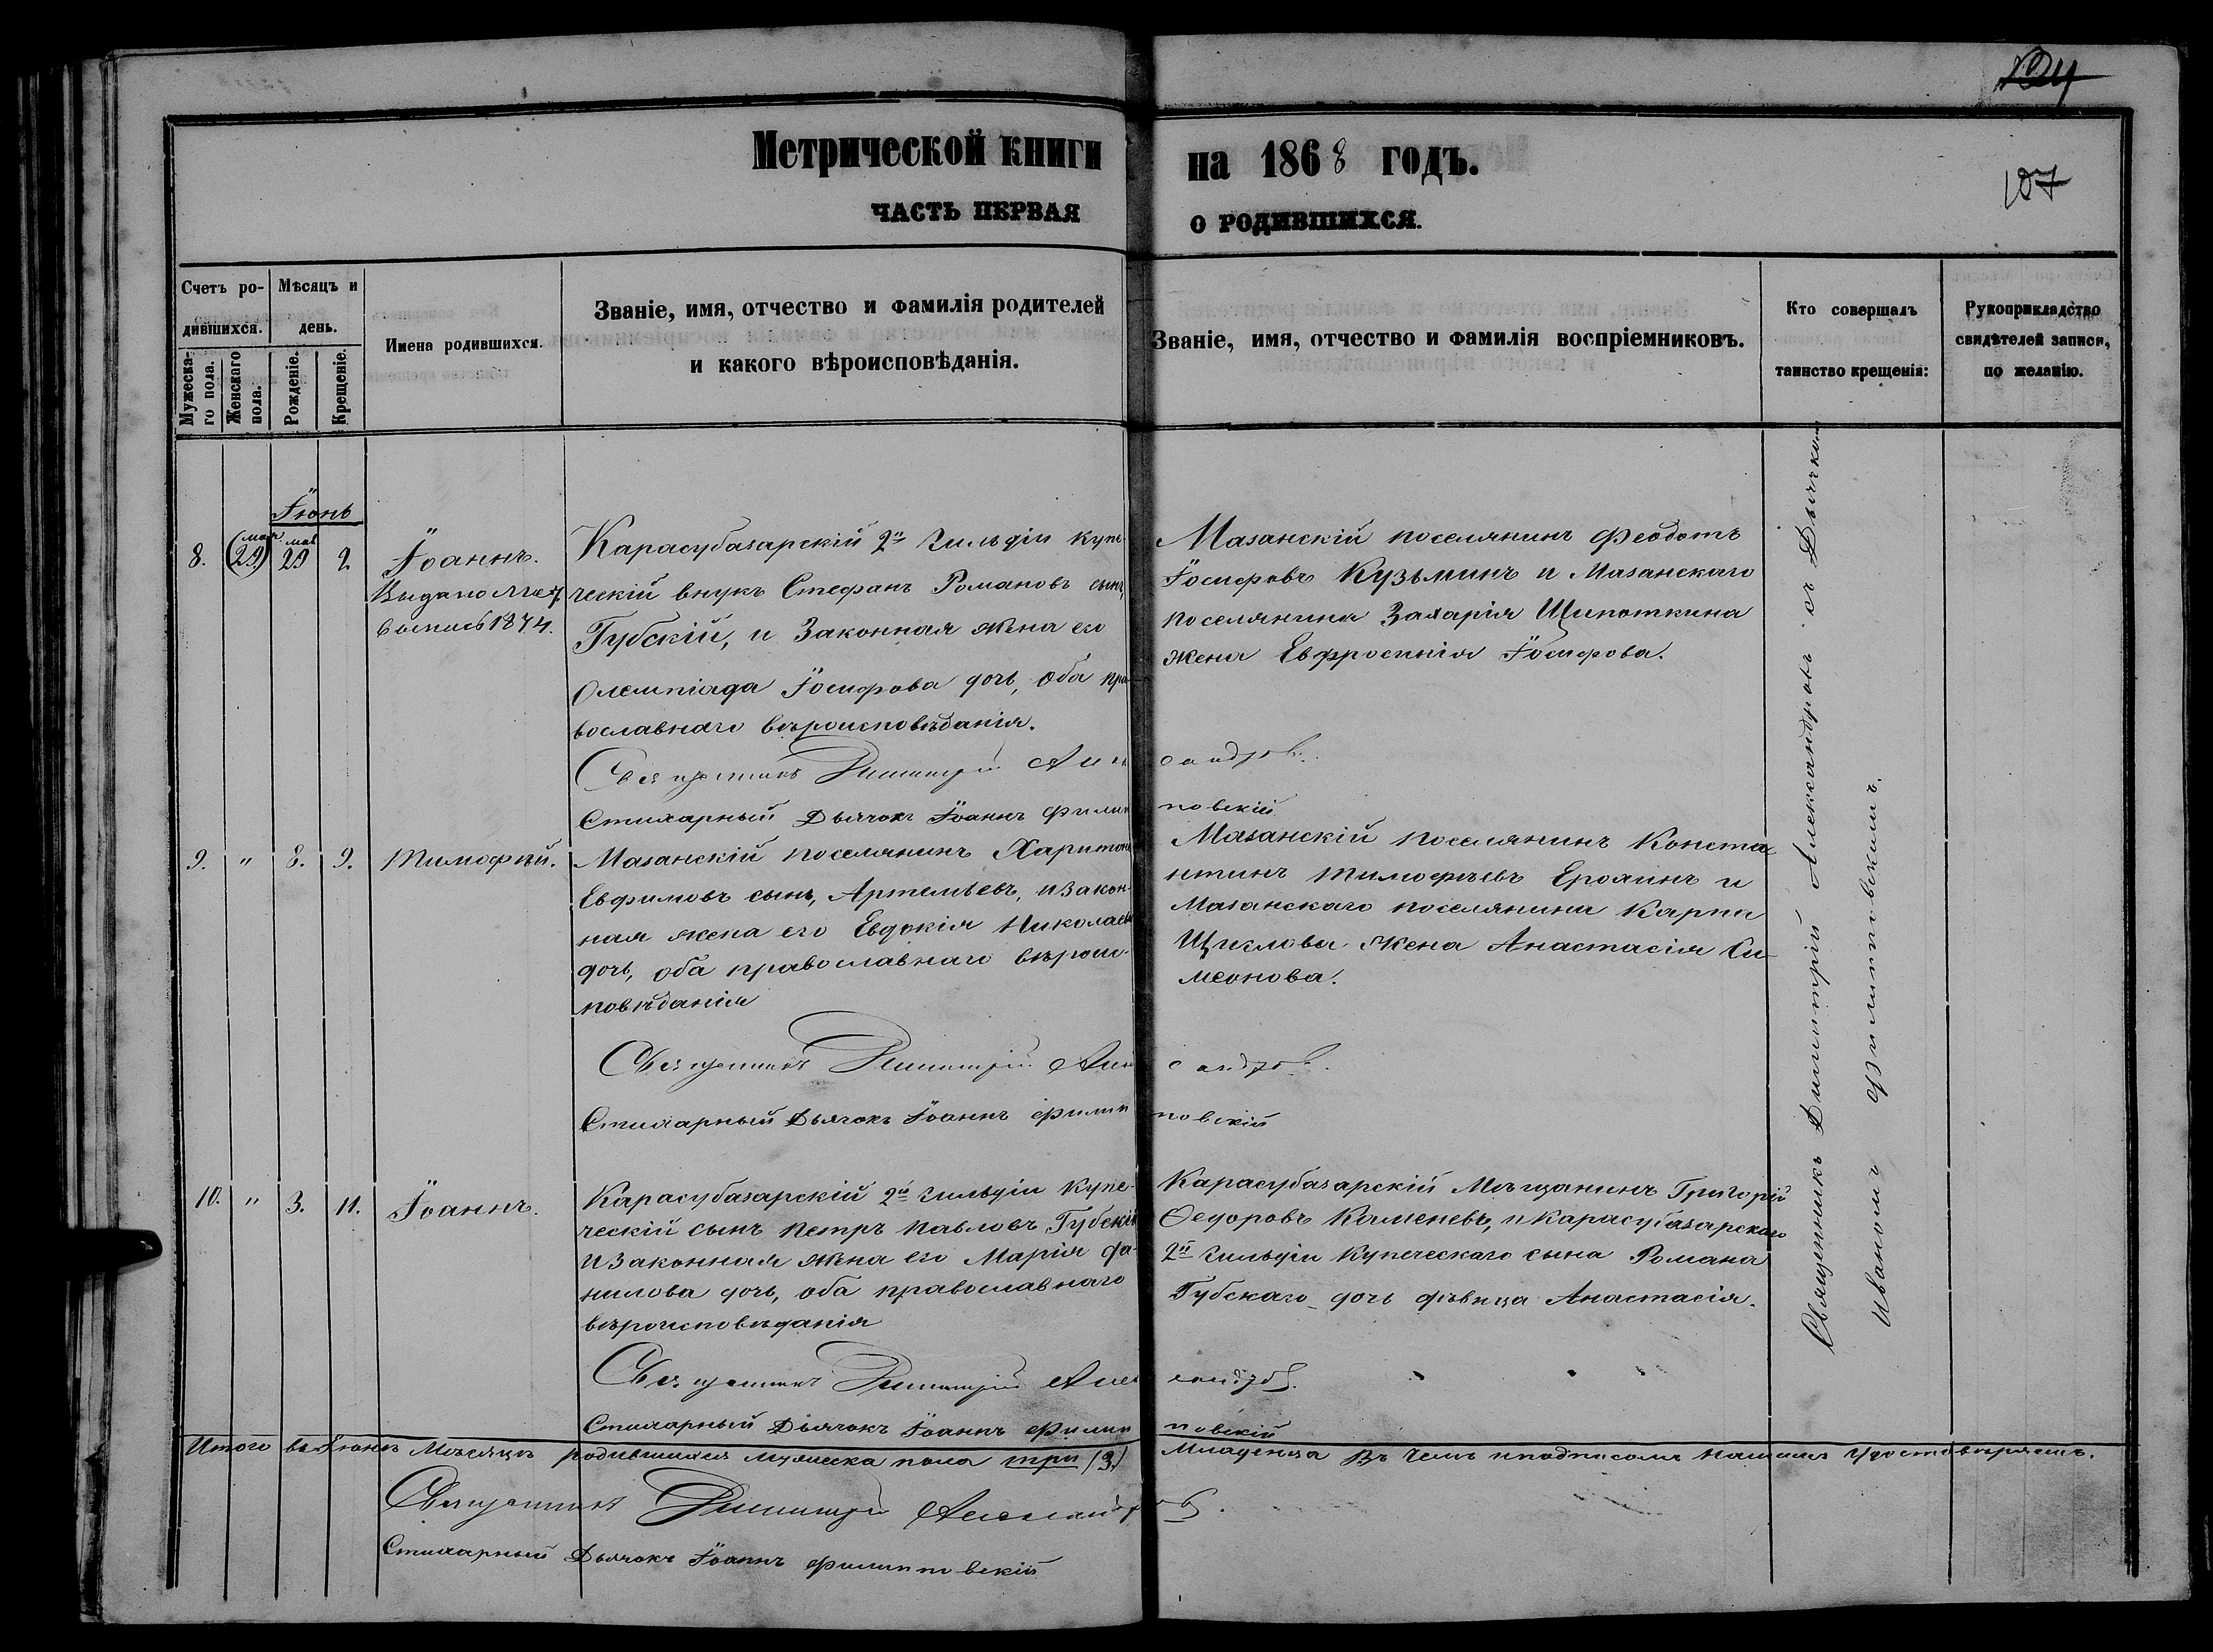 124
107
Метрической книги на 1868 годъ.
ЧАСТЬ ПЕРВАЯ О РОДИВШИХСЯ.
Счетъ ро-
дившихся.
Мужеска-
го пола.
Женскаго
пола.
Мѣсяцъ и
день.
Рожденіе.
Крещеніе.
Имена родившихся.
Званіе, имя, отчество и фамилія родителей
и какого вѣроисповѣданія.
Званіе, имя, отчество и фамилія воспріемниковъ.
Кто совершалъ
таинство крещенія:
Рукоприкладство
свидѣтелей записи,
по желанію.
Іюнь
8. (29) мая 29 2. Іоаннъ.
1874.
Карасубазарскій 2й Гильдіи купе-
ческій внукъ Стефанъ Романовъ сынъ,
Губскій, и Законная жена его
Олемпіада Іосифова дочь, оба пра-
вославнаго вѣроисповѣданія.
Мазанскій поселянинъ Феодотъ
Іосифовъ Кузьминъ и Мазанскаго
поселянина Захарія Щипоткина
жена Евфросинія Іосифова.
Священникъ Димитрій Александровъ.
Стихарный Дьячокъ Іоаннъ Филипповскій
9. " 8. 9. Тимофѣй.
Мазанскій поселянинъ Харитонъ
Евфимовъ сынъ, Артемьевъ, и закон-
ная жена его Евдокія Николаева
дочь, оба православнаго вѣроис-
повѣданія
Мазанскій поселянинъ Конста-
нтинъ Тимофѣевъ Ерохинъ и
Мазанскаго поселянина Карпа
Щеглова жена Анастасія Си-
меонова.
Священникъ Димитрій Александровъ.
Стихарный Дьячокъ Іоаннъ Филипповскій
10. " 3. 11. Іоаннъ.
Карасубазарскій 2й Гильдіи Купе-
ческій сынъ Петръ Павловъ Губскій
и законная жена его Марія Да-
нилова дочь, оба православнаго
вѣроисповѣданія
Карасубазарскій Мѣщанинъ Григорій
Федоровъ Каменевъ, и Карасубазарскаго
2й Гильдіи Купеческаго сына Романа
Губскаго дочь дѣвица Анастасія.
Священникъ Димитрій Александровъ.
Стихарный Дьячокъ Іоаннъ Филипповскій
Священникъ Димитрій Александровъ съ Дьячкомъ
Иваномъ Филипповскимъ.
Итого въ Іюнѣ Мѣсяцѣ родившихся мужеска пола три (3) Младенца Въ чемъ и подписомъ нашимъ удостовѣряемъ.
Священникъ Димитрій Александровъ.
Стихарный Дьячокъ Іоаннъ Филипповскій